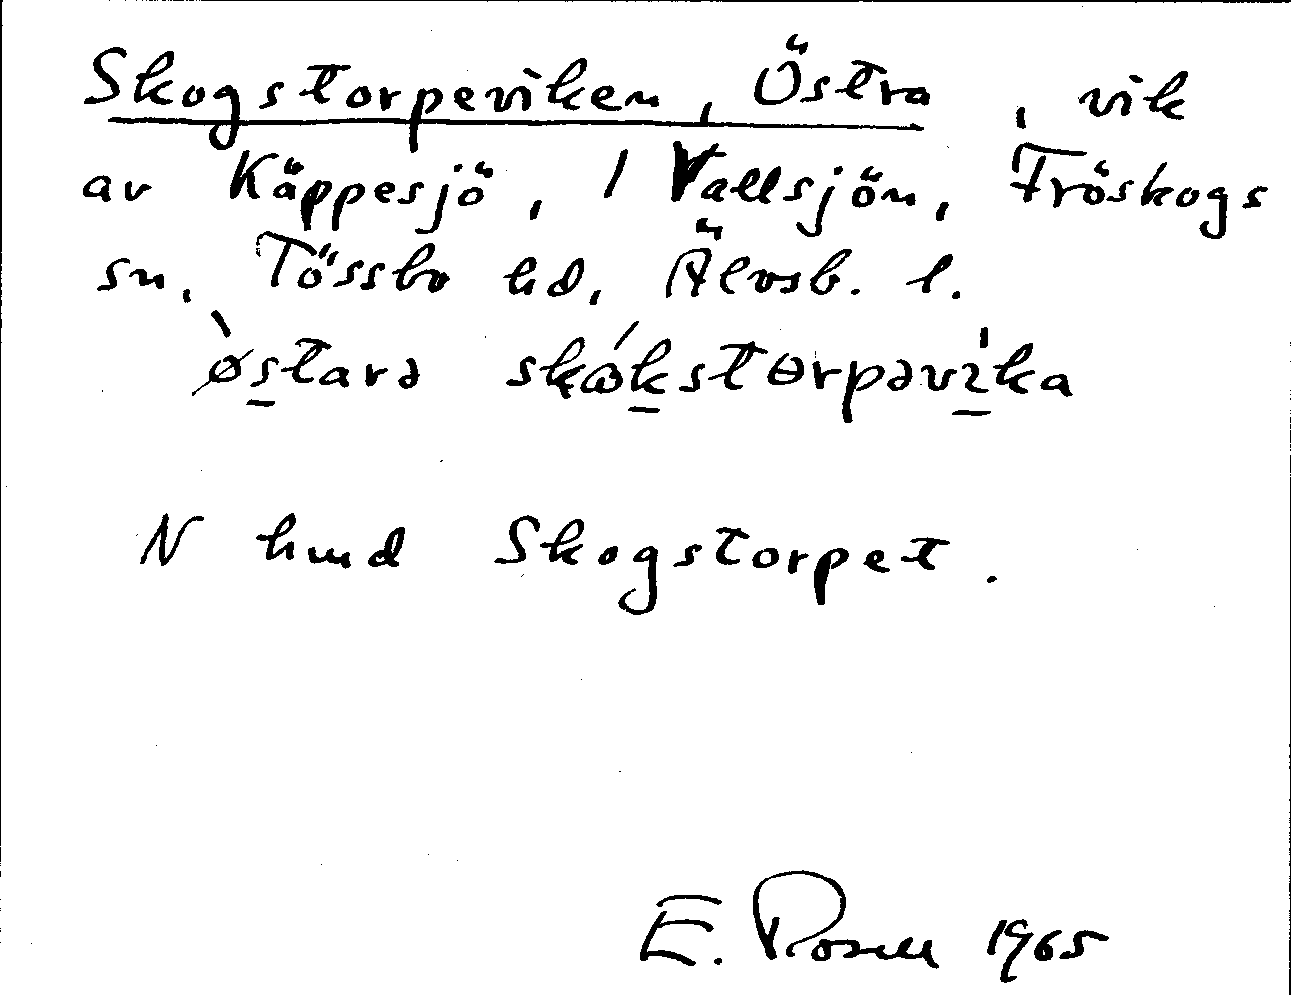 Skogstorpeviken, Östra, vik
av Käppesjö, / Vallsjön, Fröskogs
sn, Tössbo hd, Älvsb. l.
østarə skåkstɵrpəvika
N hmd Skogstorpet.
E. Rosell 1965